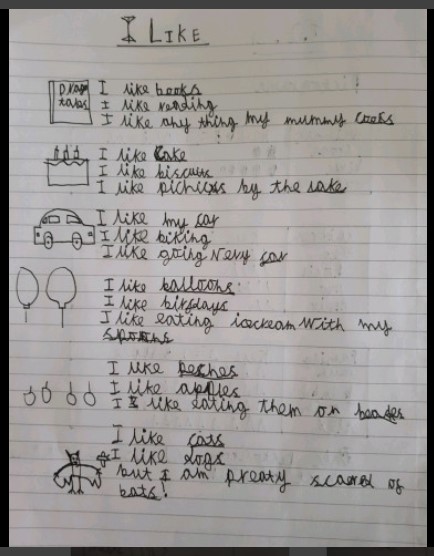 I LIKE
I like books
I like reading
I like any thing my mummy cooks
I like Cake
I like biscuts
I like pichicns by the lake
I like my car
I like biking
I like going very car
I like balloons
I like birsdays
I like eating icecream With my
spoons
I like peshes
I like apples
I like eating them on beaches
I like cats
I like dogs
but I am preaty scared of
bats!